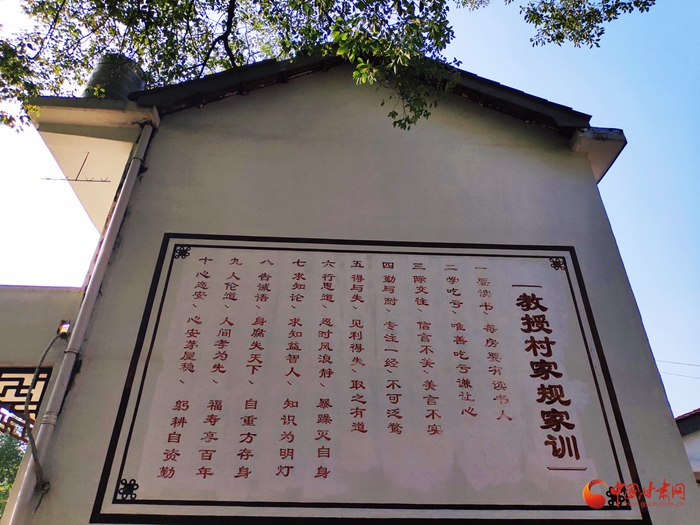 教授村家规家训
一要读书、每房要有读书人
二学吃亏、唯善吃亏谦让心
三际交往、信言不美、美言不实
四勤与耐、专注一经、不可泛骛
五得与失、见利得失、取之有道
六行思道、忍时风浪静、暴躁灭自身
七求知论、求知益智人、知识为明灯
八告诫语、身腐失天下、自重方存身
九人伦道、人间孝为先、福寿享百年
十心态安、心安茅屋稳、躬耕自资勤
中国甘肃网